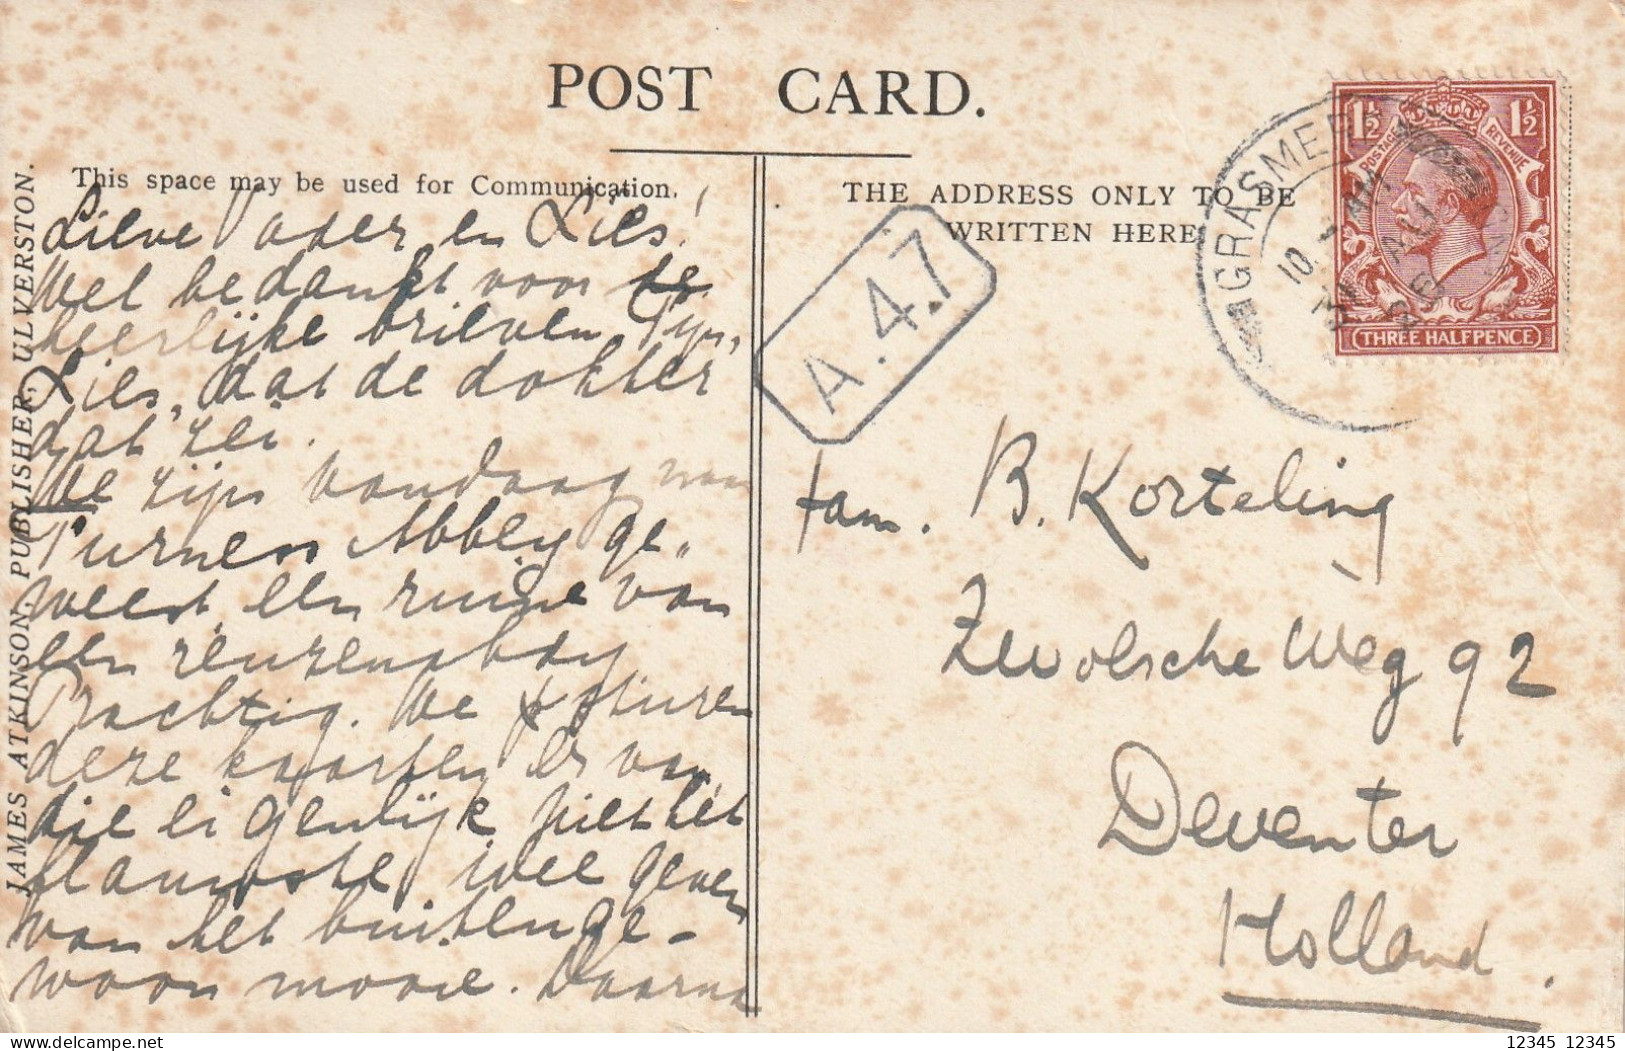 POST CARD.
This space may be used for Communication.
THE ADDRESS ONLY TO BE
WRITTEN HERE
JAMES ATKINSON, PUBLISHER, ULVERSTON.
Lieve Vader en Lies!
Wel bedankt voor te
heerlijke brieven. Fijn,
Lies, dat de dokter
dat zei.
We zijn vandaag naar
Furness Abbey ge-
weest, een ruine van
een reuzenabdy
Prachtig. We sturen
deze kaarten er van,
die eigenlijk niet het
flauwste idee geven
van het buitenge-
woon mooie. Daarna
A.47
GRASMERE
10
1½ 1½
POSTAGE REVENUE
THREE HALFPENCE
Fam. B. Korteling
Zwolsche Weg 92
Deventer
Holland.
12345 12345